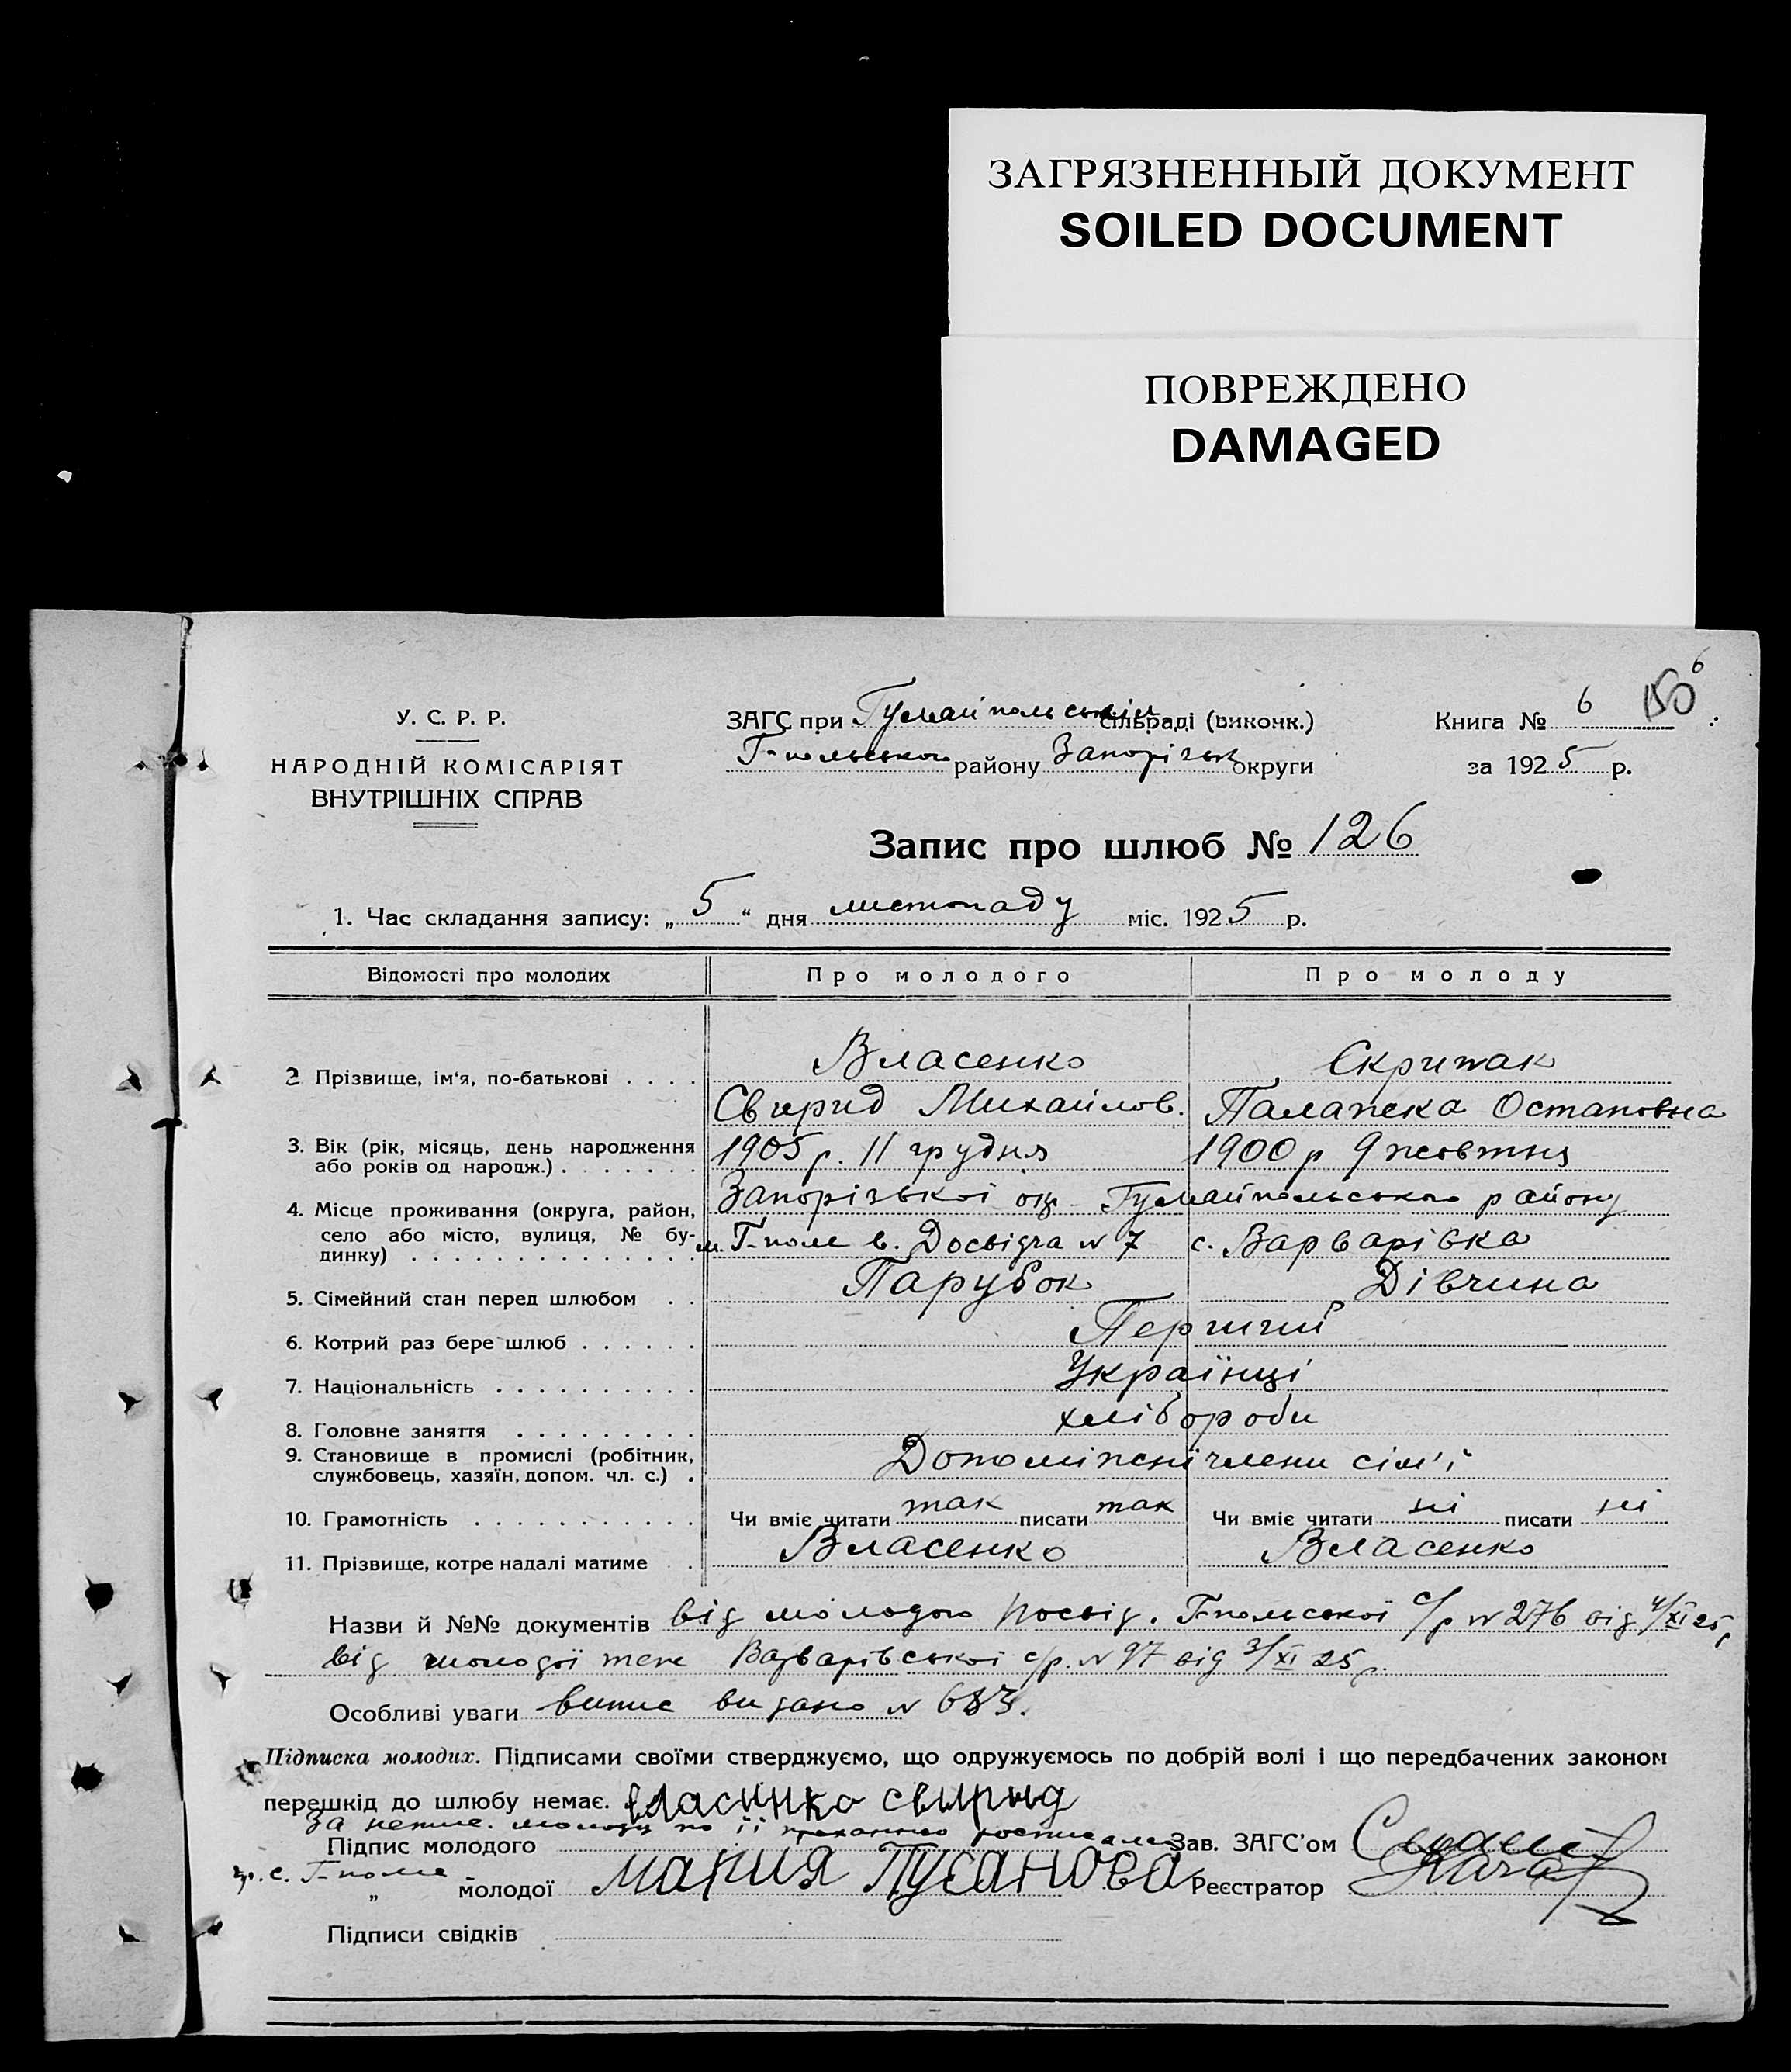 ЗАГРЯЗНЕННЫЙ ДОКУМЕНТ
SOILED DOCUMENT
ПОВРЕЖДЕНО
DAMAGED
6
150
У. С. Р. Р.
НАРОДНІЙ КОМІСАРІЯТ
ВНУТРІШНІХ СПРАВ
ЗАГС при Гуляйпольській сільраді (виконк.)
Г-польського району Запорізьк округи
Книга № 6
за 1925 р.
Запис про шлюб № 126
1. Час складання запису: „5“ дня листопаду міс. 1925 р.
Відомості про молодих Про молодого Про молоду
Власенко Скрипак
2 Прізвище, ім'я, по-батькові . . . .
Свирид Михайлов. Палажка Остаповна
3. Вік (рік, місяць, день народження 1905 р. 11 грудня 1900 р 9 жовтня
або років од народж.) . . . . . . .
Запорізької ок. Гуляйпольського району
4. Місце проживання (округа, район,
село або місто, вулиця, № бу- м. Г-поле в. Досвідча № 7 с. Варварівка
динку) . . . . . . . . . . . . . .
5. Сімейний стан перед шлюбом . . Парубок Дівчина
6. Котрий раз бере шлюб . . . . . . Перший
7. Національність . . . . . . . . . . Українці
8. Головне заняття . . . . . . . . . хлібороби
9. Становище в промислі (робітник, Допоміжні члени сім'ї
службовець, хазяїн, допом. чл. с.) .
10. Грамотність . . . . . . . . . . . Чи вміє читати так писати так Чи вміє читати ні писати ні
11. Прізвище, котре надалі матиме . Власенко Власенко
Назви й №№ документів від молодого посвід. Г-польської с/р № 276 від 4/XI 25 р
від молодої теж Варварівської с/р. № 97 від 3/XI 25 р.
Особливі уваги випис видано № 683.
Підписка молодих. Підписами своїми стверджуємо, що одружуємось по добрій волі і що передбачених законом
перешкід до шлюбу немає. власинко свырыд
За непис. молоду по її проханню росписалась
Підпис молодого Зав. ЗАГС'ом
гр. с. Г-поле
„ молодої мария Пусанова Реєстратор
Підписи свідків